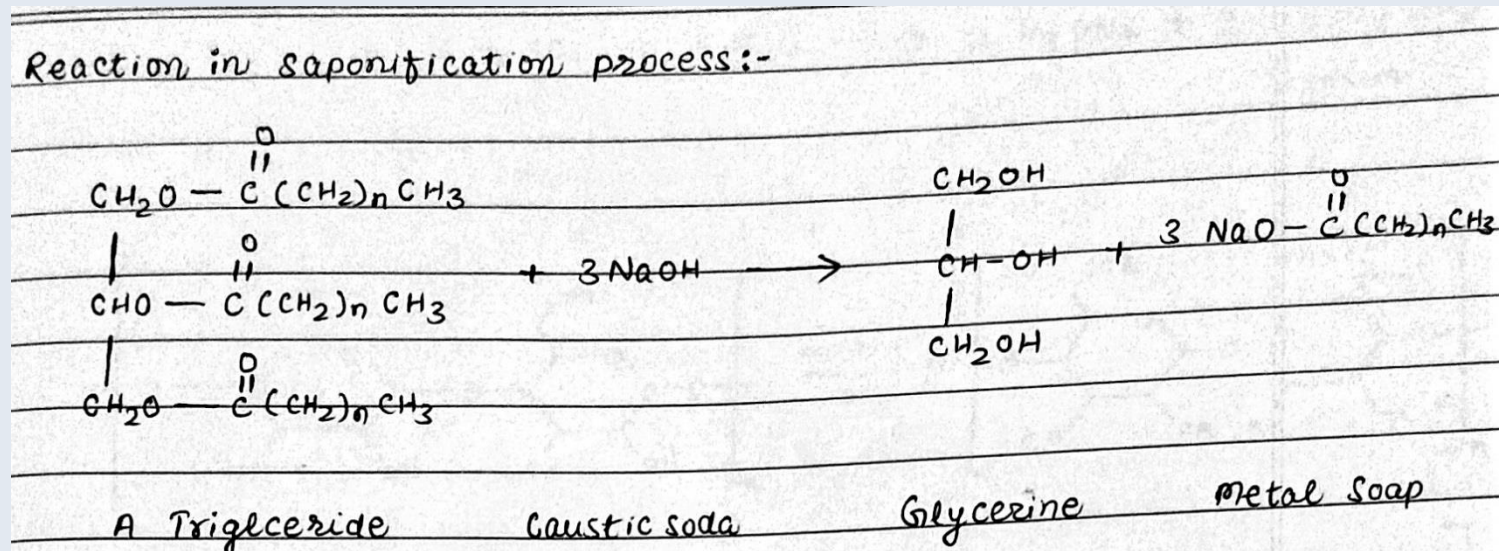 Reaction in saponification process:-
O
||
CH2O — C (CH2)n CH3
|
O
||
CHO — C (CH2)n CH3
|
O
||
CH2O — C (CH2)n CH3
+ 3 NaOH ⟶
CH2OH
|
CH-OH
|
CH2OH
+
O
||
3 NaO — C (CH2)n CH3
A Triglceride Caustic soda Glycerine Metal Soap